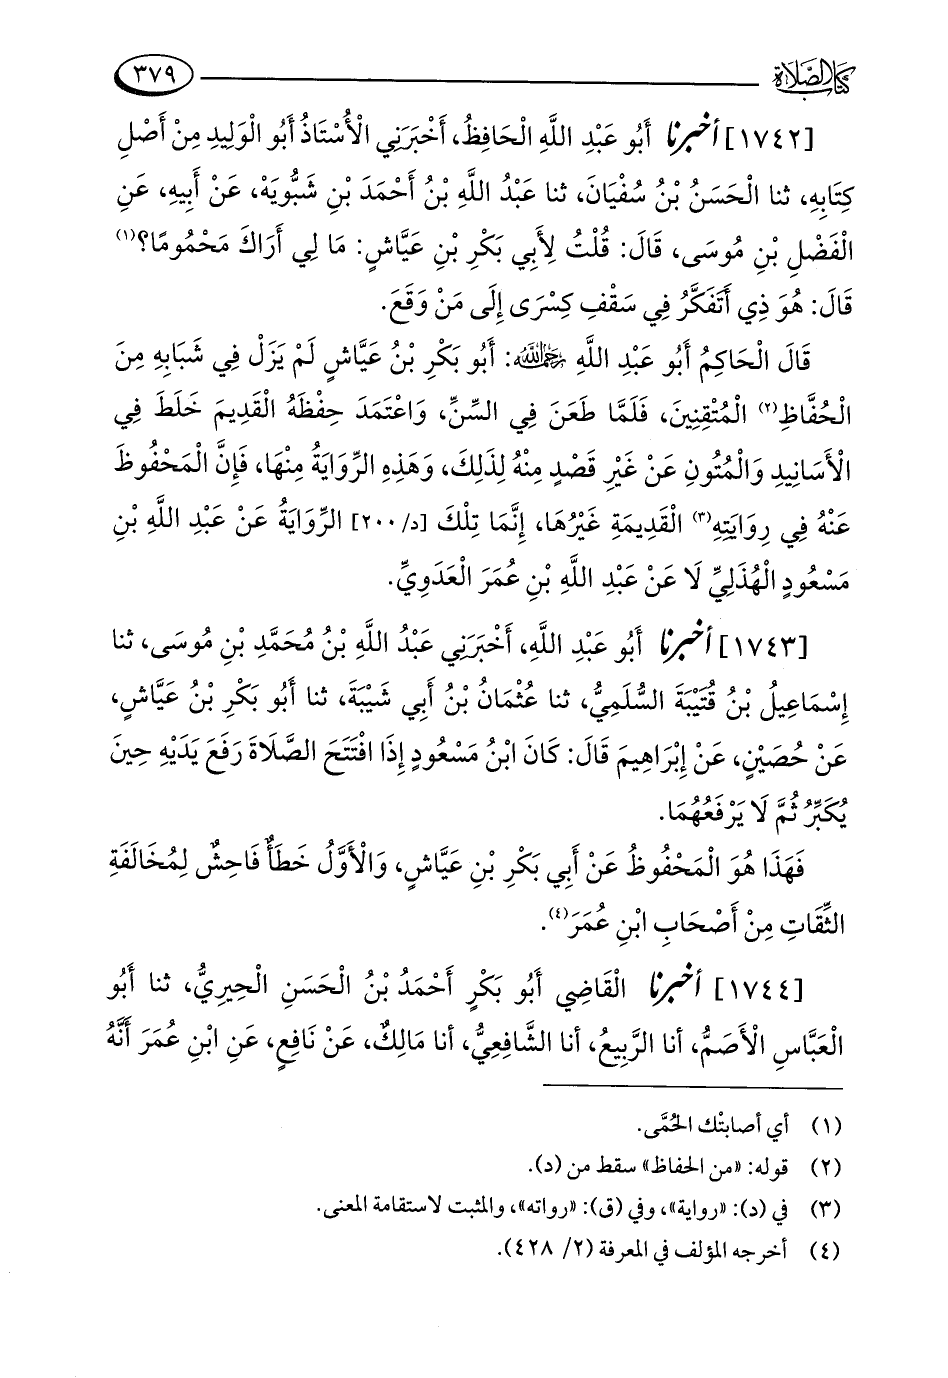 كتاب الصلاة ٣٧٩
[١٧٤٢] أخبرنا أَبُو عَبْدِ اللَّهِ الْحَافِظُ، أَخْبَرَنِي الْأُسْتَاذُ أَبُو الْوَلِيدِ مِنْ أَصْلِ
كِتَابِهِ، ثنا الْحَسَنُ بْنُ سُفْيَانَ، ثنا عَبْدُ اللَّهِ بْنُ أَحْمَدَ بْنِ شَبُّويَهْ، عَنْ أَبِيهِ، عَنِ
الْفَضْلِ بْنِ مُوسَى، قَالَ: قُلْتُ لِأَبِي بَكْرِ بْنِ عَيَّاشٍ: مَا لِي أَرَاكَ مَحْمُومًا؟(١)
قَالَ: هُوَ ذِي أَتَفَكَّرُ فِي سَقْفِ كِسْرَى إِلَى مَنْ وَقَعَ.
قَالَ الْحَاكِمُ أَبُو عَبْدِ اللَّهِ رحمه الله: أَبُو بَكْرِ بْنُ عَيَّاشٍ لَمْ يَزَلْ فِي شَبَابِهِ مِنَ
الْحُفَّاظِ(٢) الْمُتْقِنِينَ، فَلَمَّا طَعَنَ فِي السِّنِّ، وَاعْتَمَدَ حِفْظَهُ الْقَدِيمَ خَلَطَ فِي
الْأَسَانِيدِ وَالْمُتُونِ عَنْ غَيْرِ قَصْدٍ مِنْهُ لِذَلِكَ، وَهَذِهِ الرِّوَايَةُ مِنْهَا، فَإِنَّ الْمَحْفُوظَ
عَنْهُ فِي رِوَايَتِهِ(٣) الْقَدِيمَةِ غَيْرُهَا، إِنَّمَا تِلْكَ [د/٢٠٠] الرِّوَايَةُ عَنْ عَبْدِ اللَّهِ بْنِ
مَسْعُودٍ الْهُذَلِيِّ لَا عَنْ عَبْدِ اللَّهِ بْنِ عُمَرَ الْعَدَوِيِّ.
[١٧٤٣] أخبرنا أَبُو عَبْدِ اللَّهِ، أَخْبَرَنِي عَبْدُ اللَّهِ بْنُ مُحَمَّدِ بْنِ مُوسَى، ثنا
إِسْمَاعِيلُ بْنُ قُتَيْبَةَ السُّلَمِيُّ، ثنا عُثْمَانُ بْنُ أَبِي شَيْبَةَ، ثنا أَبُو بَكْرِ بْنُ عَيَّاشٍ،
عَنْ حُصَيْنٍ، عَنْ إِبْرَاهِيمَ قَالَ: كَانَ ابْنُ مَسْعُودٍ إِذَا افْتَتَحَ الصَّلَاةَ رَفَعَ يَدَيْهِ حِينَ
يُكَبِّرُ ثُمَّ لَا يَرْفَعُهُمَا.
فَهَذَا هُوَ الْمَحْفُوظُ عَنْ أَبِي بَكْرِ بْنِ عَيَّاشٍ، وَالْأَوَّلُ خَطَأٌ فَاحِشٌ لِمُخَالَفَةِ
الثِّقَاتِ مِنْ أَصْحَابِ ابْنِ عُمَرَ(٤).
[١٧٤٤] أخبرنا الْقَاضِي أَبُو بَكْرٍ أَحْمَدُ بْنُ الْحَسَنِ الْحِيرِيُّ، ثنا أَبُو
الْعَبَّاسِ الْأَصَمُّ، أنا الرَّبِيعُ، أنا الشَّافِعِيُّ، أنا مَالِكٌ، عَنْ نَافِعٍ، عَنِ ابْنِ عُمَرَ أَنَّهُ
(١) أي أصابتْك الحُمَّى.
(٢) قوله: «من الحفاظ» سقط من (د).
(٣) في (د): «رواية»، وفي (ق): «رواته»، والمثبت لاستقامة المعنى.
(٤) أخرجه المؤلف في المعرفة (٢/ ٤٢٨).